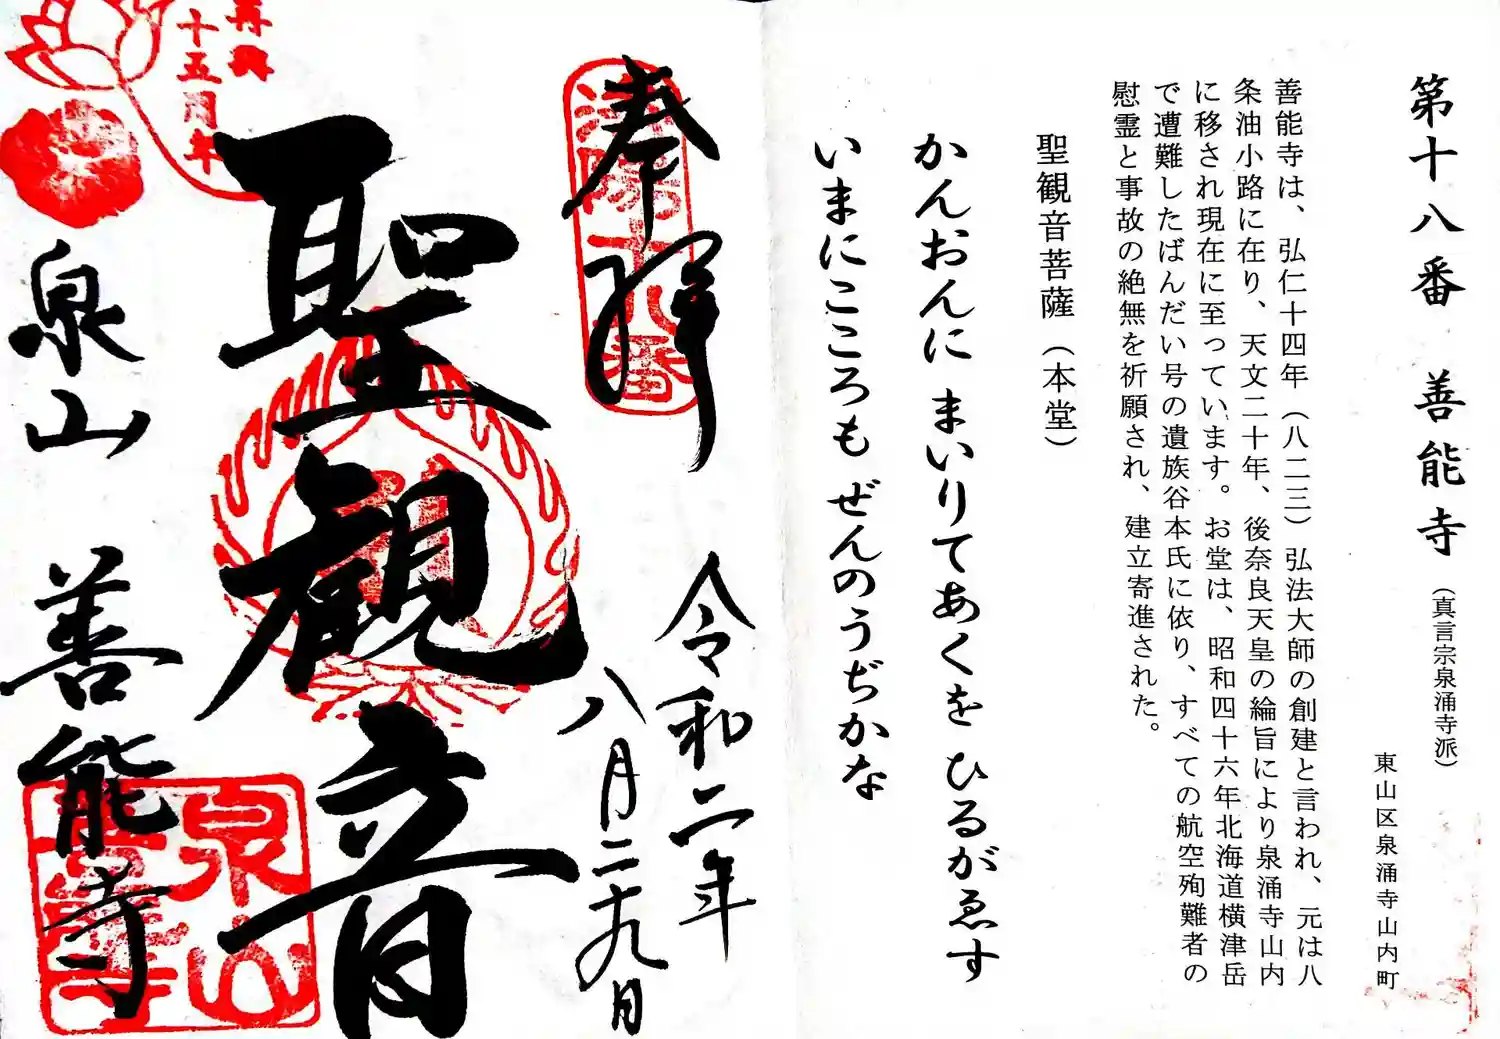 第十八番 善能寺（真言宗泉涌寺派）
東山区泉涌寺山内町
善能寺は、弘仁十四年（八二三）弘法大師の創建と言われ、元は八
条油小路に在り、天文二十年、後奈良天皇の綸旨により泉涌寺山内
に移され現在に至っています。お堂は、昭和四十六年北海道横津岳
で遭難したばんだい号の遺族谷本氏に依り、すべての航空殉難者の
慰霊と事故の絶無を祈願され、建立寄進された。
聖観音菩薩（本堂）
かんおんに まいりてあくを ひるがゑす
いまにこころも ぜんのうぢかな
奉拝
洛陽十八番
令和二年
八月二十九日
聖観音
再興
十五周年
泉山 善能寺
泉山
善能寺